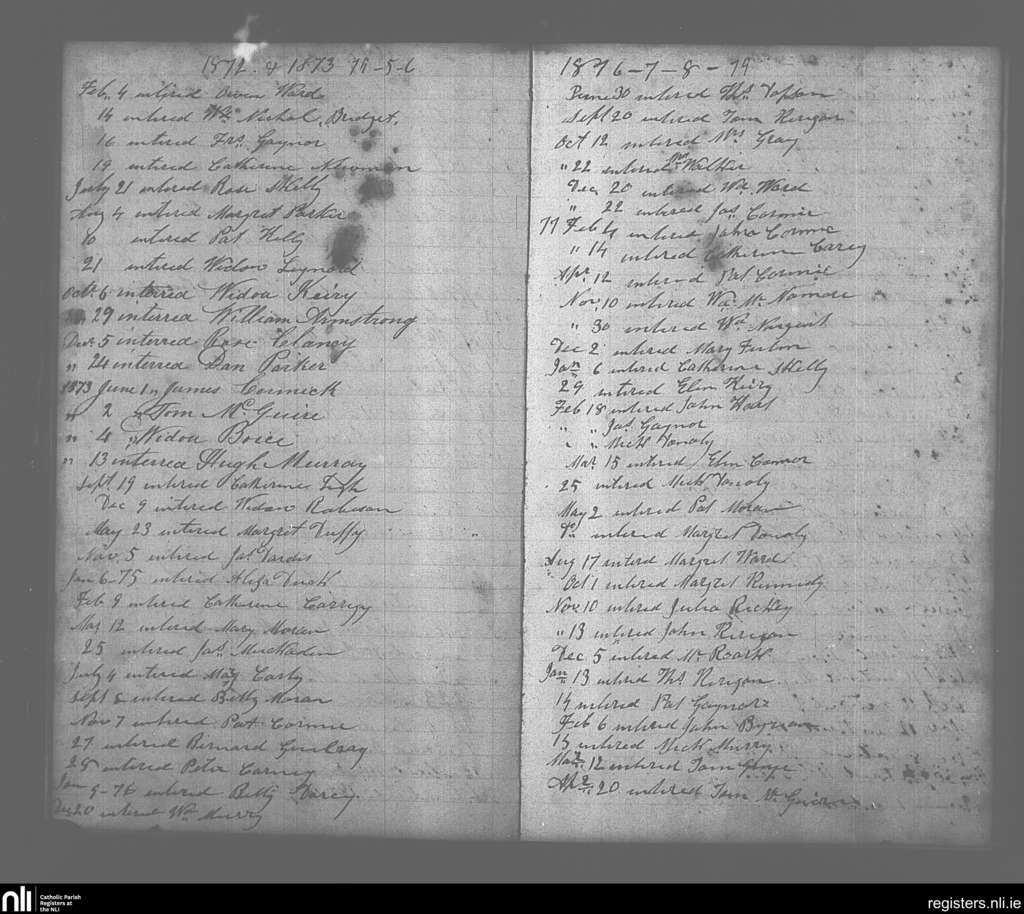 1872 & 1873 74-5-6
Feb. 4 intired Owen Ward
14 intired Wm Nichol, Bridget,
16 intired Frs. Gaynor
19 intired Catherine Newman
July 21 intired Rose Skelly
Aug 4 intired Margret Parker
10 intired Pat Kelly
21 intired Widow Leynord
Oct. 6 interred Widoa Keiry
29 interred William Armstrong
Decr 5 interred Rose Clancy
" 24 interred Dan Parker
1873 June 1 " James Cormick
" 2 " Tom Mc Guire
" 4 " Widoa Boice
" 13 interred Hugh Murray
Sept. 19 intired Catherine
Dec 9 intired Widow Robinson
May 23 intired Margret Duffy
Nov. 5 intired Jas Dardis
Jan 6-75 intired Aliza Duck
Feb 9 intired Catherine Carrigy
Mar 12 intired Mary Moran
25 intired Jas.
July 4 intired May Carty
Sept 2 intired Betty Moran
Nov 7 intired Pat Cormic
27 intired Bernard
28 intired Peter Carney
Jan 9-76 intired Betty Darcy
20 intired Wm Murry
1876-7-8-79
June 30 intired Ths.
Sept 20 intired Tom Kerigan
Oct 12 intired Mrs Gray
" 22 intired Mr Walker
Dec 20 intired Wm. Ward
" 22 intired Jas Cormic
77 Feb 4 intired Cormic
" 14 intired Catherine Carey
Apr. 12 intired Pat Cormic
Nov. 10 intired Wm. Mc Namore
" 30 intired Wm Nugent
Dec 2 intired Mary
Jan 6 intired Catherine Skelly
29 intired Elin Keiry
Feb 18 intired John
" " Jas Gaynor
" " Mick Donoly
Mar. 15 intired Elin Connor
25 intired Mick Donoly
May 2 intired Pat Moran
Do intired Margret Donoly
Aug 17 intired Margret Ward
Oct 1 intired Margret Kennedy
Nov 10 intired Julia Rickey
" 13 intired John Kerigan
Dec 5 intired Mr Roark
Jan 13 intired Ths Kerigan
14 intired Pat Gaynor
Feb 6 intired John
15 intired Mick Murry
Mar. 12 intired Tom
Apl. 20 intired Tom Mc
nli
Catholic Parish
Registers at
the NLI
registers.nli.ie